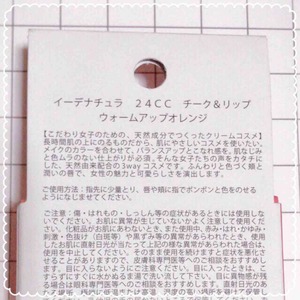 イーデナチュラ 24CC チーク&リップ
ウォームアップオレンジ
【こだわり女子のための、天然成分でつくったクリームコスメ】
長時間肌の上にのるものだから、肌にやさしいコスメを使いたい。
メイクのカラーを合わせて、バランスアップとこなれ感を。肌なじみ
と色ムラのない仕上がりが必須。そんな女子たちの声をカタチに
した、天然由来配合の3wayコスメです。ふんわりと色づく頬と
潤いの唇で、女性の魅力と可愛らしさを演出します。
ご使用方法：指先に少量とり、唇や頬に指でポンポンと色をのせる
ようになじませてください。
ご注意：傷・はれもの・しっしん等の症状があるときには使用しな
いでください。お肌に異常が生じていないかよく注意して使用して
ください。化粧品がお肌にあわないとき、また使用中、赤み・はれ・かゆみ・
刺激・色抜け（白斑等）や黒ずみ等の異常があらわれた場合、使用した
お肌に直射日光が当たって上記の様な異常があらわれた場合は、
使用を中止してください。そのまま使用を続けますと症状を悪化
させることがありますので、皮膚科専門医等へのご相談をおすすめします。
目に入らないようにご注意ください。目に入ったときは、こ
すらずにすぐに水かぬるま湯で洗い流して下さい。